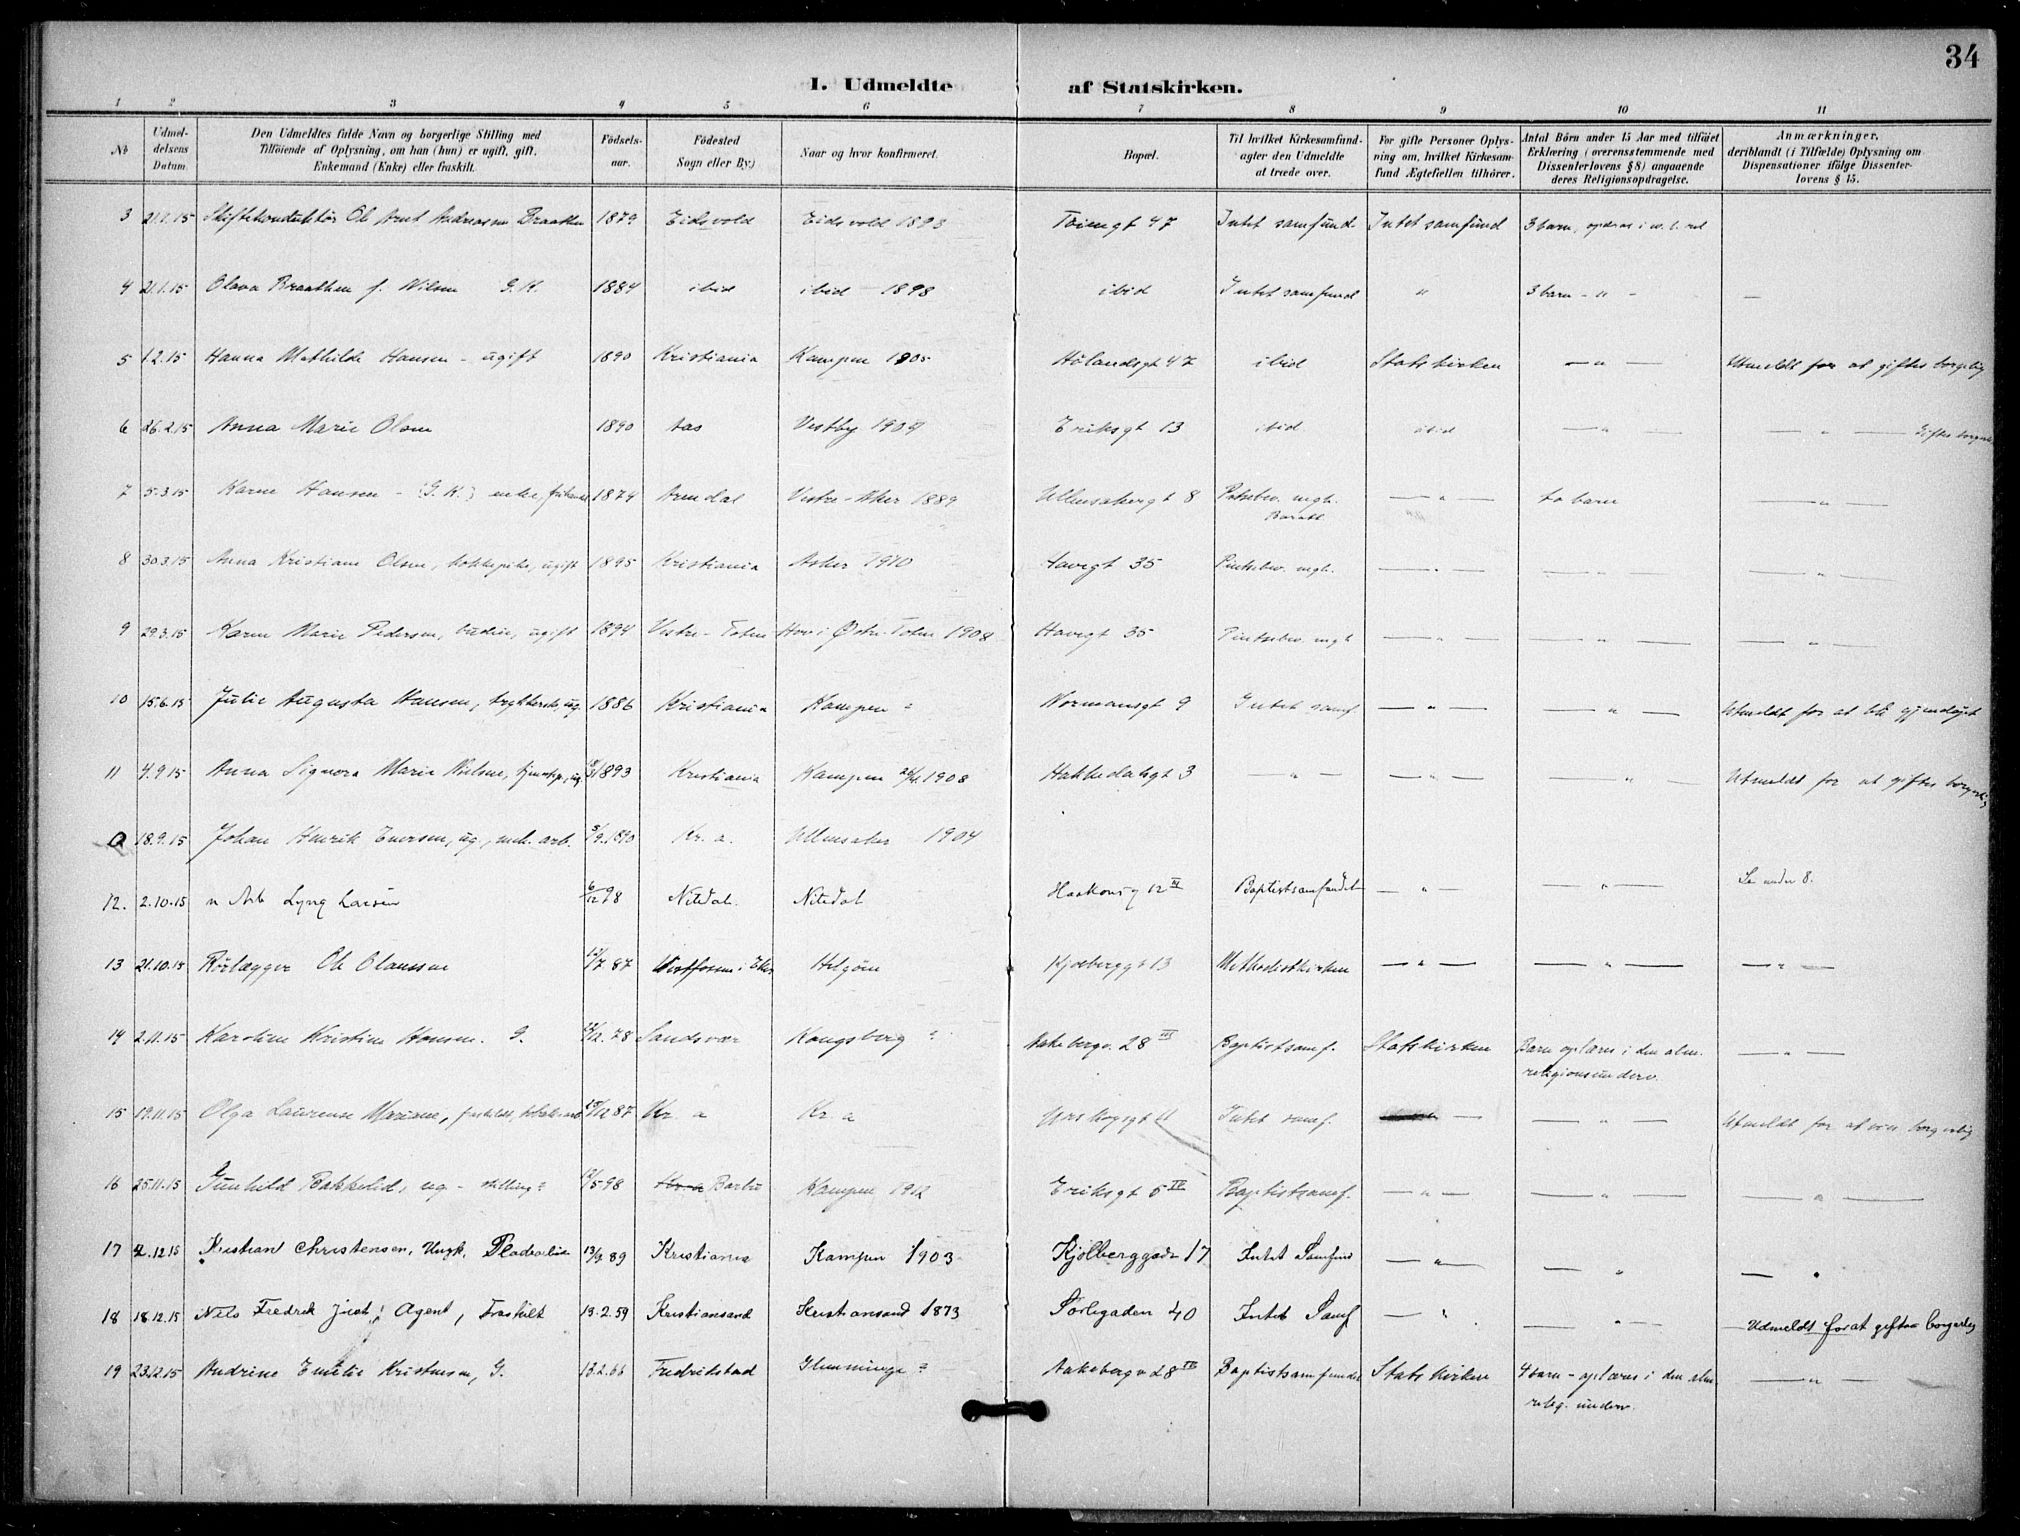 34
I. Udmeldte af Statskirken.
1 2 3 4 5 6 7 8 9 10 11
No
Udmel-
delsens
Datum.
Den Udmeldtes fulde Navn og borgerlige Stilling med
Tilföiende af Oplysning, om han (hun) er ugift, gift,
Enkemand (Enke) eller fraskilt.
Födsels-
aar.
Födested
Sogn eller By.)
Naar og hvor konfirmeret.
Bopæl.
Til hvilket Kirkesamfund-
agter den Udmeldte
at træde over.
For gifte Personer Oplys-
ning om, hvilket Kirkesam-
fund Ægtefællen tilhörer.
Antal Börn under 15 Aar med tilföiet
Erklæring (overensstemmende med
Dissenterlovens § 8) angaaende
deres Religionsopdragelse.
Anmærkninger,
deriblandt (i Tilfælde) Oplysning om
Dispensationer ifölge Dissenter-
lovens § 15.
3 21.1.15 Ole Braathen 1879 Eidsvold Eidsvold 1893 Töiengt 47 Intet samfund Intet samfund 3 barn
4 21.1.15 Olava Braathen f. Nilsen G.K. 1884 ibid ibid 1898 ibid Intet samfund " 3 barn - " - —
5 1.2.15 Hanna Mathilde Hansen - ugift 1890 Kristiania Kampen 1905 Hölandsgt 47 ibid Statskirken — " — Utmeldt for at giftes borgelig
6 26.2.15 Anna Marie Olsen 1890 Aas Vestby 1904 Eriksgt 13 ibid ibid — " — — " — Giftes borgerlig
7 5.3.15 Karen Hansen - (G.K.) 1874 Arendal Vestre-Aker 1889 Ullensakergt 8 — " — to barn — " —
8 30.3.15 Anna Kristiane Olsen, kokkepike, ugift 1895 Kristiania Asker 1910 Havegt 35 Pintsebev. mgh. — " — — " — — " —
9 29.3.15 Karen Marie Pedersen, budeie, ugift 1894 Vestre-Toten Hov i Østre-Toten 1908 Havegt 35 Pintsebev. mgh — " — — " — — " —
10 15.6.15 Julie Augusta Hansen, ug. 1886 Kristiania Kampen ? Normansgt 9 Intet samf. — " — — " — Utmeldt for at bli gjendöpt
11 4.9.15 Anna Signora Marie Nielsen, ug. 1893 Kristiania Kampen 1908 Hakkedalsgt 3 — " — — " — — " — Utmeldt for at giftes borgerlig
18.9.15 Johan Henrik Enersen, ug., mek. arb. 5/9.1890 Kr.a. Ullensaker 1904
12. 2.10.15 Arb Lyng Larsen 6/12 98 Nitedal. Nitedal Haakonsg 12 III Baptistsamfundet — " — — " — Se under 8.
13 21.10.15 Rörlægger Ole Olaussen 12/7 87 Vestfossen i Eker Kjölberggt 13 Methodistkirken — " — — " — — " —
14 2.11.15 Karoline Kristine Hansen. G. 12. 78 Sandsvær Kongsberg ? Aakebergv. 28 III Baptistsamf. Statskirken Barn oplæres i den alm. — " —
religionsunderv.
15 19.11.15 Olga Laurense Mariane, 12 87 Kr a Kr a Urskogsgt 11 Intet samf. — — " — Utmeldt for at borgerlig
16 25.11.15 Gunhild Bakkelid, ug - stilling? 12/5 98 Barbu Kampen 1912 Eriksgt 5 IV Baptistsamf. — " — — " — — " —
17 2.12.15 Kristian Christensen, Ungk. 13/9 89 Kristiania Kampen 1903 Kjölberggade 17 Intet Samfund — " — — " — — "
18 18.12.15 Nils Fredrik Juel, Agent, Fraskilt 13.2.59 Kristiansand Kristiansand 1873 Sörligaden 40 Intet Samf — " — " — Udmeldt for at giftes borgerlig
19 23.12.15 Andrine Emilie Kristensen, G. 13.2.66 Fredrikstad Glemminge ? Aakebergv 28 IV Baptistsamfundet Statskirken 4 barn - oplæres i den alm — " —
relig. underv.